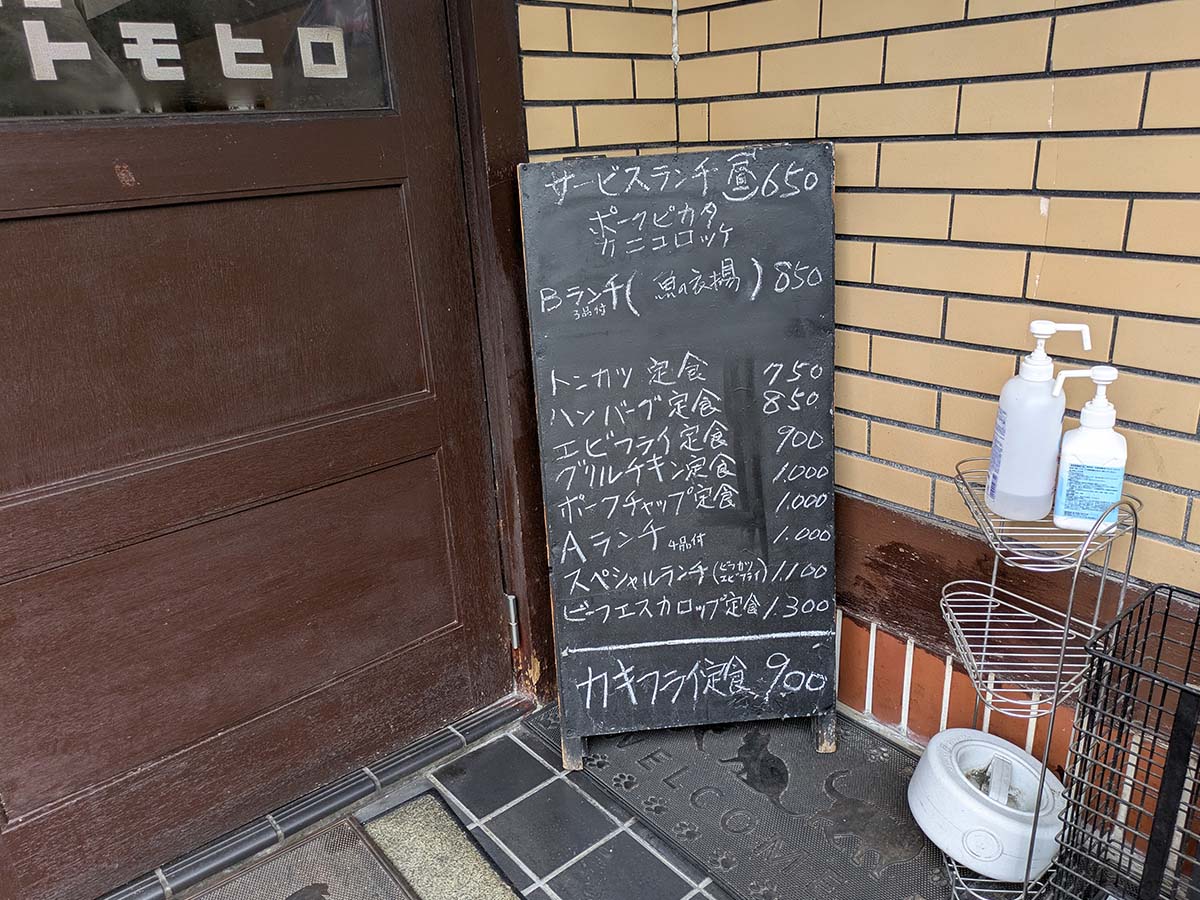 トモヒロ
サービスランチ 昼 650
ポークピカタ
カニコロッケ
Bランチ( 魚の衣揚 ) 850
3品付
トンカツ 定食 750
ハンバーグ定食 850
エビフライ定食 900
グリルチキン定食 1.000
ポークチャップ定食 1.000
Aランチ 4品付 1.000
スペシャルランチ(ヒラカツ エビフライ) 1.100
ビーフエスカロップ定食 1.300
カキフライ定食 900
WELCOME